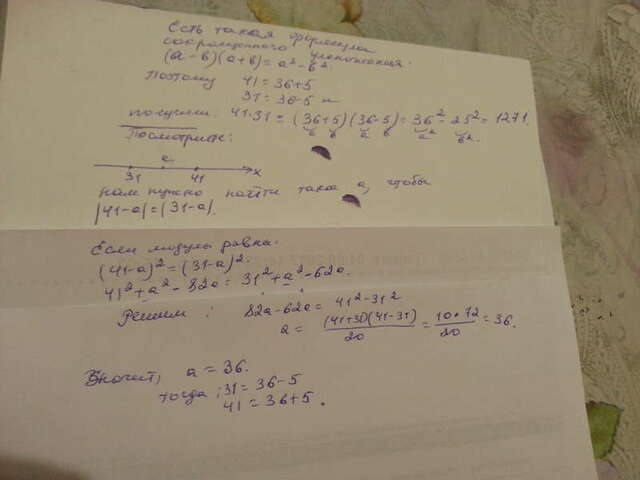 Есть такая формула
сокращенного умножения:
(a-b)(a+b)=a²-b².
Поэтому 41=36+5
31=36-5 и
получим: 41·31=(36+5)(36-5)=36²-25²=1271.
a b a b a² b².
Посмотрите:
a
31 41 x
нам нужно найти такое a, чтобы
|41-a|=|31-a|.
Если модули равны:
(41-a)²=(31-a)².
41²+a²-82a=31²+a²-62a.
Решим: 82a-62a=41²-31²
a=(41+31)(41-31)/20=10·72/20=36.
Значит, a=36.
тогда: 31=36-5
41=36+5.